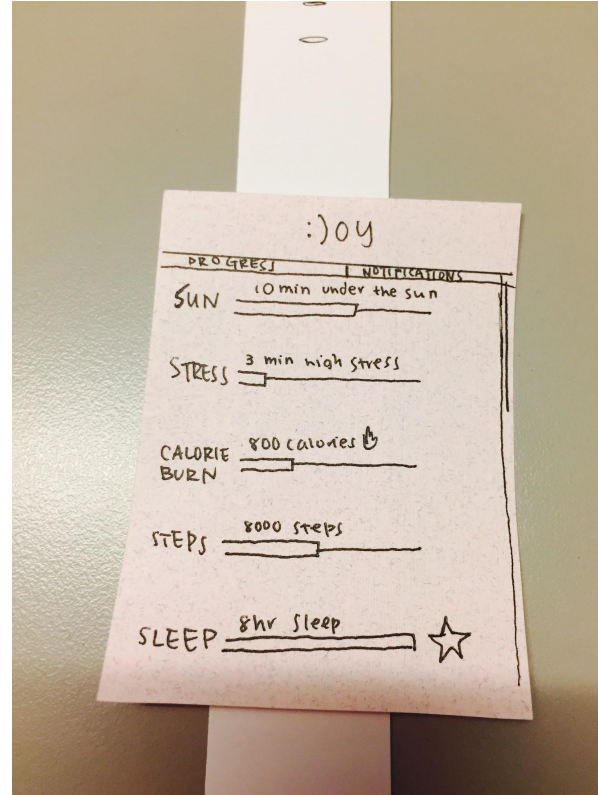 :)oy
PROGRESS NOTIFICATIONS
SUN 10 min under the sun
STRESS 3 min high stress
CALORIE BURN 800 calories
STEPS 8000 steps
SLEEP 8hr sleep